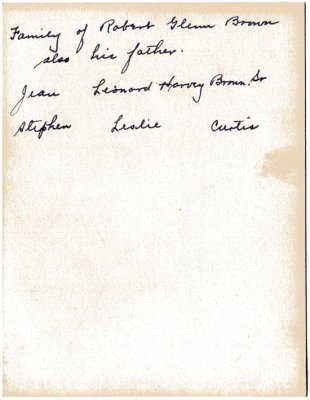 Family of Robert Glenn Brown
also his father.
Jean Leonard Harvey Brown, Sr
Stephen Leslie Curtis